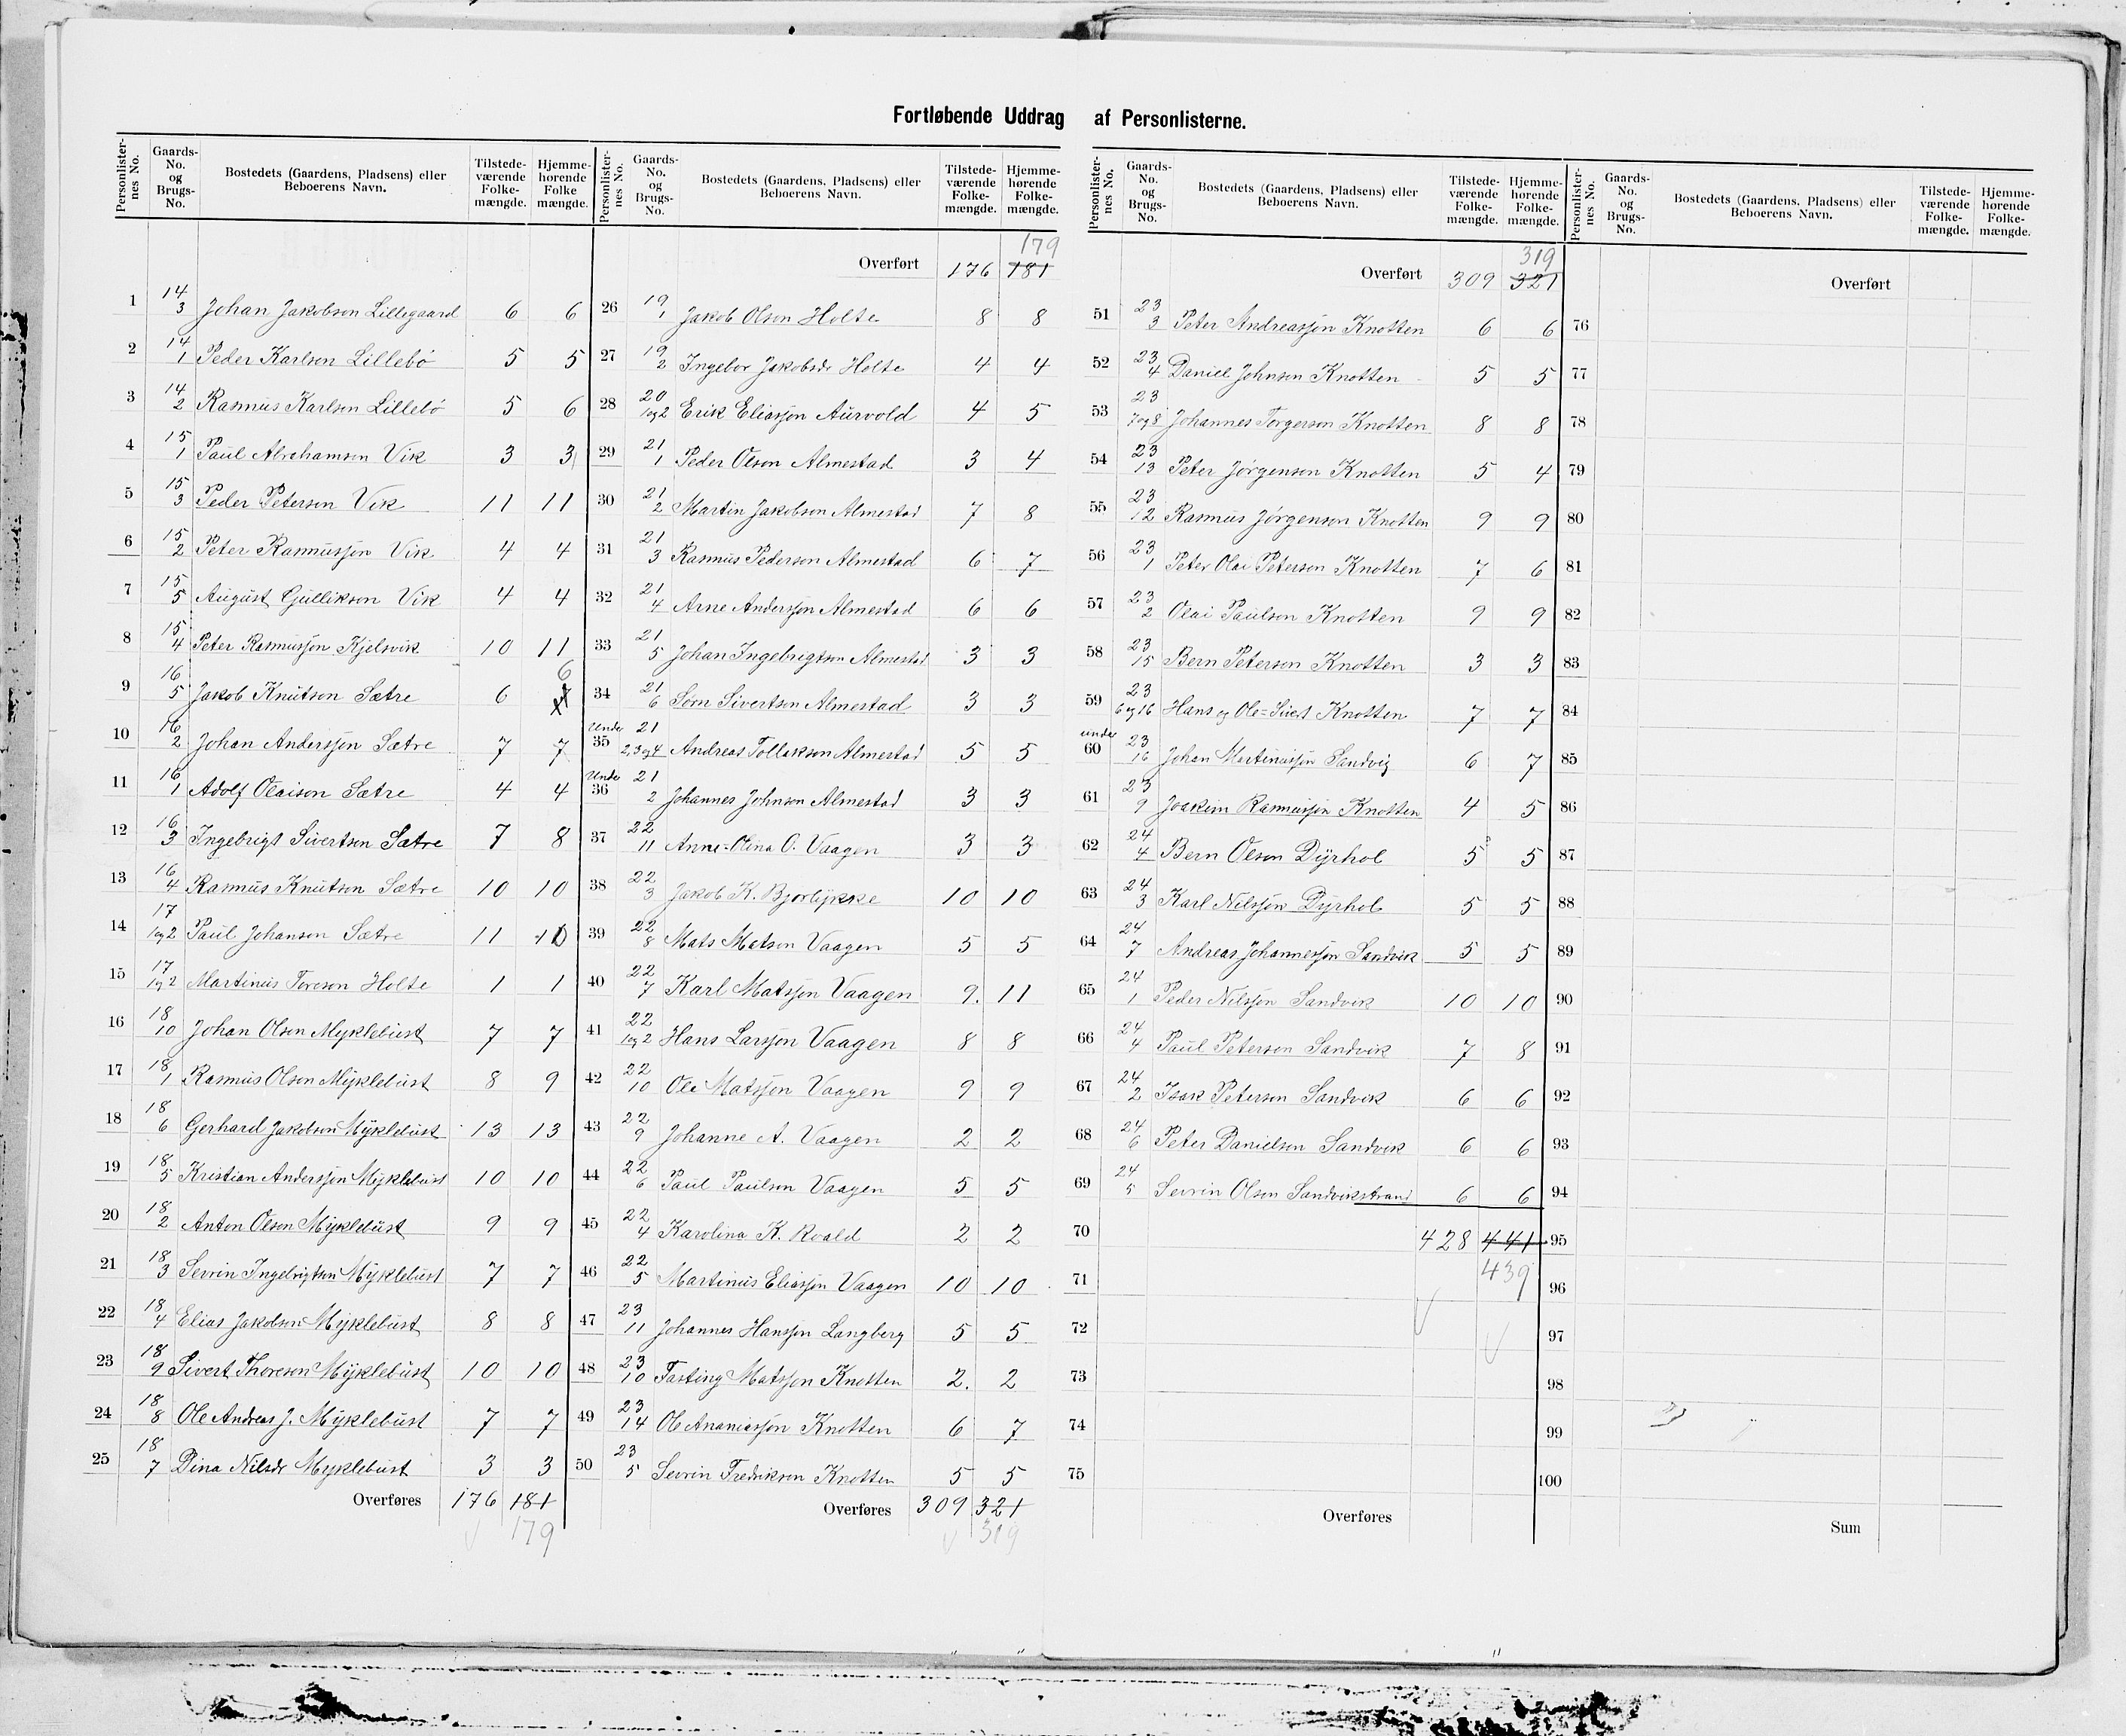 Fortløbende Uddrag af Personlisterne.
Personlister-nes No. Gaards-No. og Brugs-No. Bostedets (Gaardens, Pladsens) eller Beboerens Navn. Tilstede-værende Folke-mængde. Hjemme-hørende Folke mængde.
1 14/3 Johan Jakobson Lillegaard 6 6
2 14/1 Peder Karlson Lillebø 5 5
3 14/2 Rasmus Karlson Lillebø 5 6
4 15/1 Paul Abrahamson Vik 3 3
5 15/3 Peder Peterson Vik 11 11
6 15/2 Peter Rasmussøn Vik 4 4
7 15/5 August Gullikson Vik 4 4
8 15/4 Peter Rasmussøn Kjelsvik 10 11
9 16/5 Jakob Knutson Sætre 6 7 6
10 16/2 Johan Anderssøn Sætre 7 7
11 16/1 Adolf Olaison Sætre 4 4
12 16/3 Ingebrigt Sivertson Sætre 7 8
13 16/4 Rasmus Knutson Sætre 10 10
14 17/1og2 Paul Johanson Sætre 11 10
15 17/1og2 Martinus Toreson Holte 1 1
16 18/10 Johan Olson Myklebust 7 7
17 18/1 Rasmus Olson Myklebust 8 9
18 18/6 Gerhard Jakobson Myklebust 13 13
19 18/5 Kristian Anderssøn Myklebust 10 10
20 18/2 Anton Olson Myklebust 9 9
21 18/3 Sevrin Ingebrigtson Myklebust 7 7
22 18/4 Elias Jakobson Myklebust 8 8
23 18/9 Sivert Thoreson Myklebust 10 10
24 18/8 Ole Andreas J. Myklebust 7 7
25 18/7 Dina Nilsdr Myklebust 3 3
Overføres 176 181
179
Personlister-nes No. Gaards-No. og Brugs-No. Bostedets (Gaardens, Pladsens) eller Beboerens Navn. Tilstede-værende Folke-mængde. Hjemme-hørende Folke-mængde.
179
Overført 176 181
26 19/1 Jakob Olson Holte 8 8
27 19/2 Ingebor Jakobsdr Holte 4 4
28 20/1og2 Erik Eliassøn Aurvold 4 5
29 21/1 Peder Olson Almestad 3 4
30 21/2 Martin Jakobson Almestad 7 8
31 21/3 Rasmus Pederson Almestad 6 7
32 21/4 Arne Anderssøn Almestad 6 6
33 21/5 Johan Ingebrigtson Almestad 3 3
34 21/6 Sørn Sivertson Almestad 3 3
Under 35 21/2,3og4 Andreas Tollakson Almestad 5 5
Under 36 21/2 Johannes Johnson Almestad 3 3
37 22/11 Anne-Olina O. Vaagen 3 3
38 22/3 Jakob K. Bjørlykke 10 10
39 22/8 Mats Matson Vaagen 5 5
40 22/7 Karl Matssøn Vaagen 9. 11
41 22/1og2 Hans Larssøn Vaagen 8 8
42 22/10 Ole Matssøn Vaagen 9 9
43 22/9 Johanne A. Vaagen 2 2
44 22/6 Paul Paulson Vaagen 5 5
45 22/4 Karolina K. Roald 2 2
46 22/5 Martinus Eliassøn Vaagen 10 10
47 23/11 Johannes Hanssøn Langberg 5 5
48 23/10 Fasting Matssøn Knotten 2. 2
49 23/14 Ole Ananiassøn Knotten 6 7
50 23/5 Sevrin Fredrikson Knotten 5 5
Overføres 309 321
319
Personlister-nes No. Gaards-No. og Brugs-No. Bostedets (Gaardens, Pladsens) eller Beboerens Navn. Tilstede-værende Folke-mængde. Hjemme-hørende Folke-mængde.
319
Overført 309 321
51 23/3 Peter Andreassøn Knotten 6 6
52 23/4 Daniel Johnson Knotten 5 5
53 23/7og8 Johannes Torgerson Knotten 8 8
54 23/13 Peter Jørgenson Knotten 5 4
55 23/12 Rasmus Jørgenson Knotten 9 9
56 23/1 Peter Olai Peterson Knotten 7 6
57 23/2 Olai Paulson Knotten 9 9
58 23/15 Bern Peterson Knotten 3 3
59 23/6og16 Hans og Ole-Sivert Knotten 7 7
under 60 23/16 Johan Martinussøn Sandvig 6 7
61 23/9 Joakim Rasmussøn Knotten 4 5
62 24/4 Bern Olson Dyrhol 5 5
63 24/3 Karl Nilssøn Dyrhol 5 5
64 24/7 Andreas Johannessøn Sandvik 5 5
65 24/1 Peder Nilssøn Sandvik 10 10
66 24/4 Paul Peterson Sandvik 7 8
67 24/2 Isak Peterson Sandvik 6 6
68 24/6 Peter Danielson Sandvik 6 6
69 24/5 Sevrin Olson Sandvikstrand 6 6
70 428 441
71 439
72
73
74
75
Overføres
Personlister-nes No. Gaards-No. og Brugs-No. Bostedets (Gaardens, Pladsens) eller Beboerens Navn. Tilstede-værende Folke-mængde. Hjemme-hørende Folke-mængde.
Overført
76
77
78
79
80
81
82
83
84
85
86
87
88
89
90
91
92
93
94
95
96
97
98
99
100
Sum